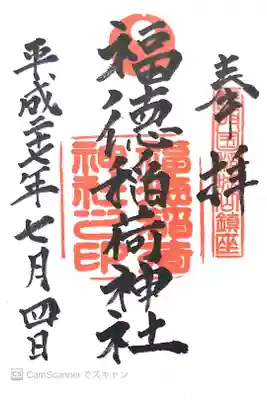 奉拝
福徳稲荷神社
平成二十七年七月四日
福徳稲荷
神社之印
CamScanner でスキャン